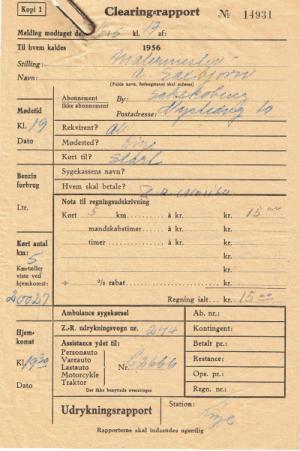 Kopi 1
Clearing-rapport
№ 14931
Melding modtaget de. kl. 17 af:
Til hvem kaldes 1956
Stilling: Malermester
Navn: A. Saxbjørn
(Fulde navn, forbogstavet skal anføres)
Abonnement
ikke abonnement
By: Sakskøbing
Postadresse: 10
Mødetid
Kl. 19
Dato
Rekvirent?
Mødested?
Kørt til?
Sygekassens navn?
Hvem skal betale?
Benzin
forbrug
Ltr.
Nota til regningsudskrivning
Kørt 5 km. à kr. kr. 15
mandskabstimer à kr. kr.
timer à kr. kr.
kr.
% rabat kr.
Regning ialt kr. 15
Kørt antal
km:
5
Km-tæller
viste ved
hjemkomst:
20027
Ambulance sygekørsel
Z.-R. udrykningsvogn nr. 274
Assistance ydet til:
Personauto
Vareauto
Lastauto
Motorcykle
Traktor
Nr.
Det ikke benyttede overstreges
Hjemkomst
Kl. 1920
Dato
Ab. nr.:
Kontingent:
Betalt pr.:
Restance:
Ops. pr.:
Regn. nr.:
Udrykningsrapport
Station:
Rapporterne skal indsendes ugentlig